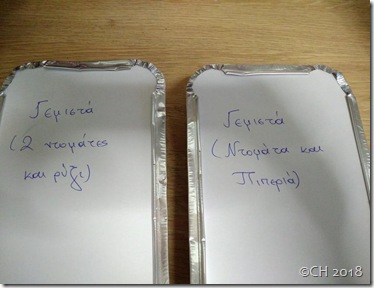 Γεμιστά
(2 ντομάτες
και ρύζι)
Γεμιστά
(Ντομάτα και
Πιπεριά)
©CH 2018